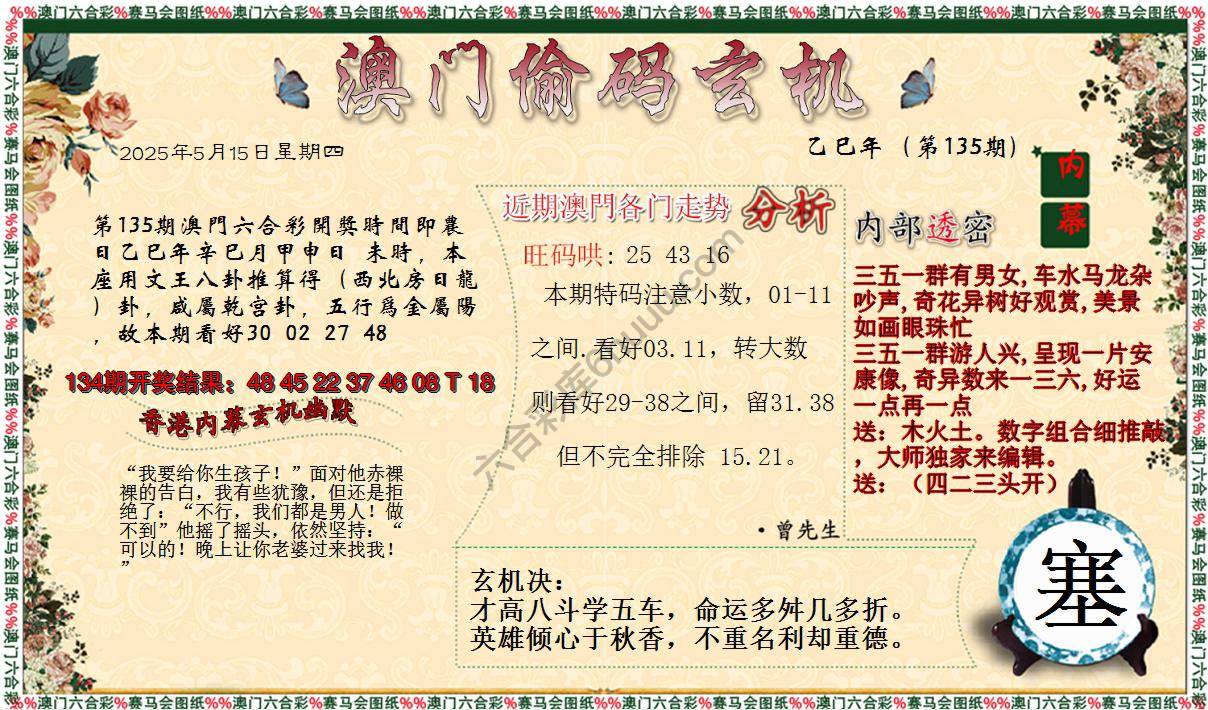 %%澳门六合彩%赛马会图纸%%澳门六合彩%赛马会图纸%%澳门六合彩%赛马会图纸%%澳门六合彩%赛马会图纸%%澳门六合彩%赛马会图纸%%澳门六合彩%赛马会图纸%%
澳门偷码玄机
2025年5月15日星期四
乙巳年（第135期）
内幕
第135期澳門六合彩開獎時間即農
日乙巳年辛巳月甲申日 未時，本
座用文王八卦推算得（西北房日龍
）卦，咸屬乾宫卦，五行爲金屬陽
，故本期看好30 02 27 48
134期开奖结果：48 45 22 37 46 08 T 18
香港内幕玄机幽默
“我要给你生孩子！”面对他赤裸
裸的告白，我有些犹豫，但还是拒
绝了：“不行，我们都是男人！做
不到”他摇了摇头，依然坚持：“
可以的！晚上让你老婆过来找我！
”
近期澳門各门走势 分析
旺码哄: 25 43 16
本期特码注意小数，01-11
之间.看好03.11，转大数
则看好29-38之间，留31.38
但不完全排除 15.21。
·曾先生
内部透密
三五一群有男女,车水马龙杂
吵声,奇花异树好观赏,美景
如画眼珠忙
三五一群游人兴,呈现一片安
康像,奇异数来一三六,好运
一点再一点
送：木火土。数字组合细推敲
，大师独家来编辑。
送：（四二三头开）
玄机决：
才高八斗学五车，命运多舛几多折。
英雄倾心于秋香，不重名利却重德。
塞
%%澳门六合彩%赛马会图纸%%澳门六合彩%赛马会图纸%%澳门六合彩%赛马会图纸%%澳门六合彩%赛马会图纸%%澳门六合彩%赛马会图纸%%澳门六合彩%赛马会图纸%%